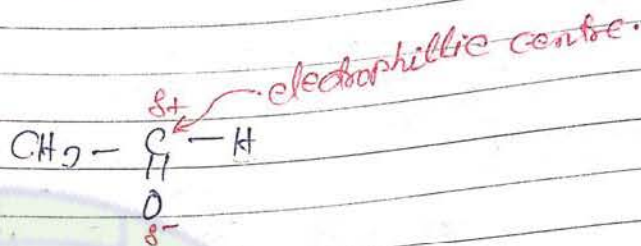 electrophillic centre.
δ+
CH₃ – C – H
||
O
δ-